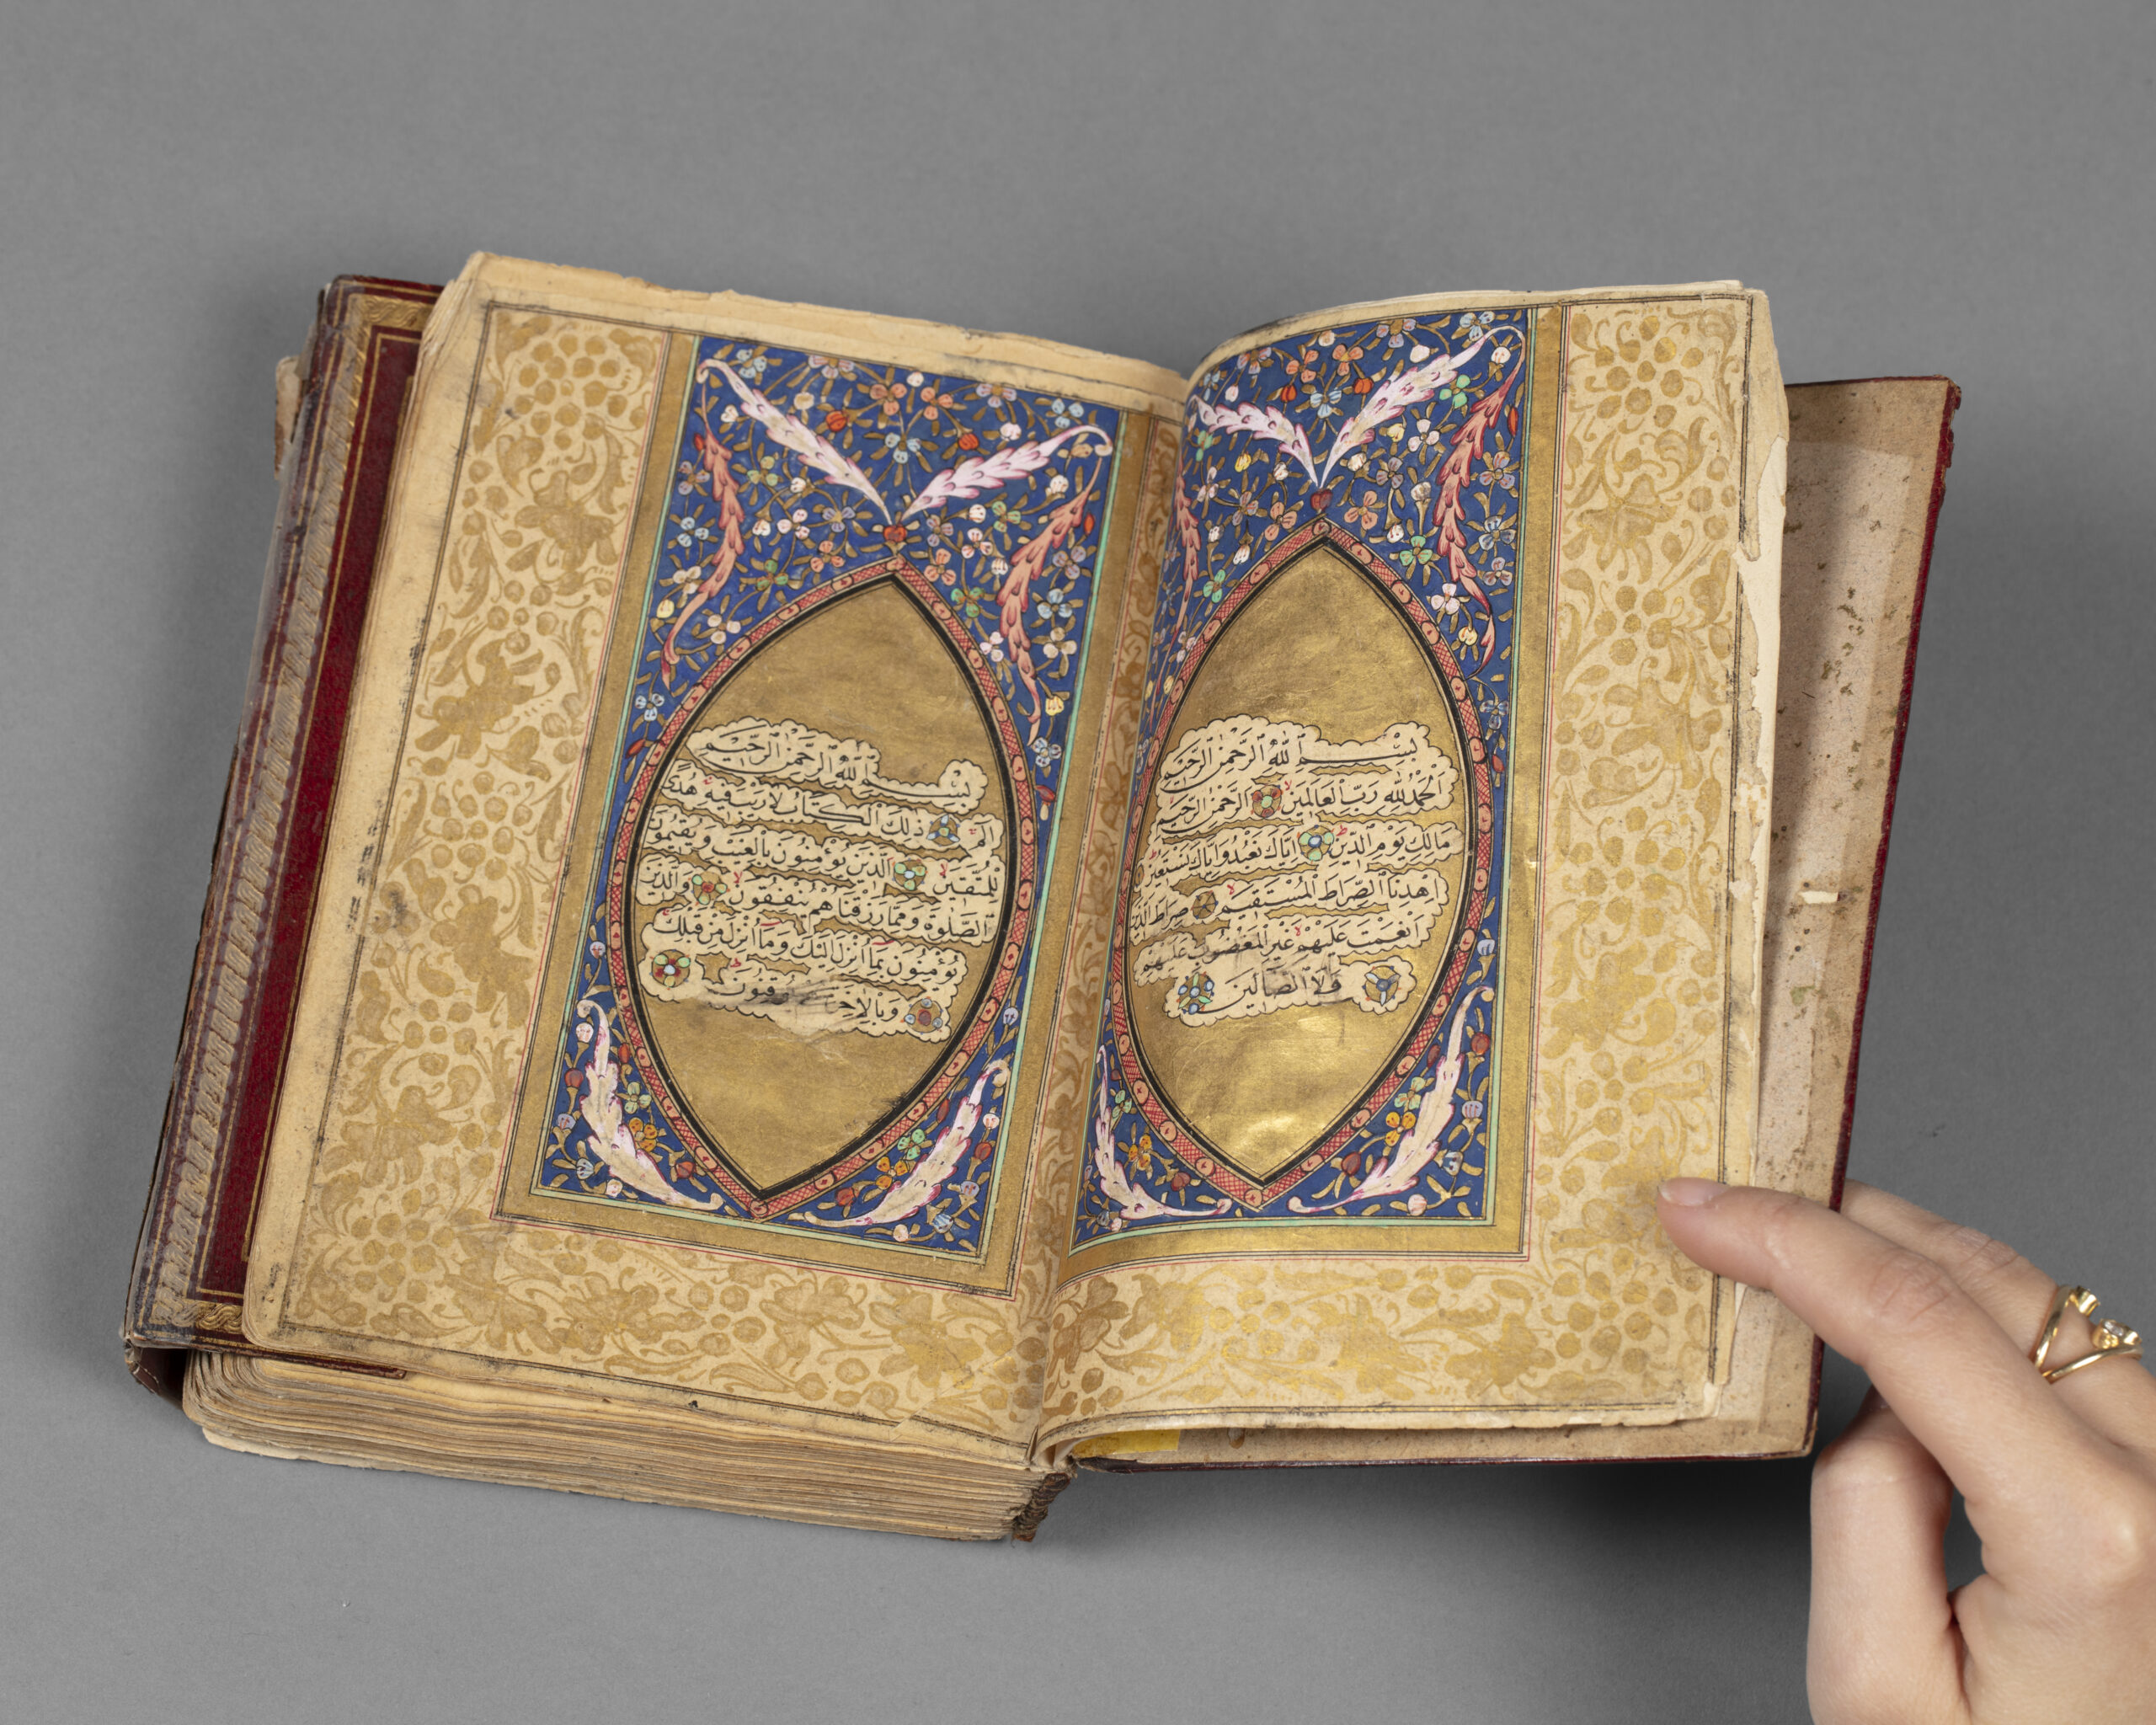 بِسْمِ اللّٰهِ الرَّحْمٰنِ الرَّحِيْمِ
اَلْحَمْدُ لِلّٰهِ رَبِّ الْعَالَمِيْنَ الرَّحْمٰنِ الرَّحِيْمِ
مَالِكِ يَوْمِ الدِّيْنِ اِيَّاكَ نَعْبُدُ وَاِيَّاكَ نَسْتَعِيْنُ
اِهْدِنَا الصِّرَاطَ الْمُسْتَقِيْمَ صِرَاطَ الَّذِيْنَ
اَنْعَمْتَ عَلَيْهِمْ غَيْرِ الْمَغْضُوْبِ عَلَيْهِمْ
وَلَا الضَّالِّيْنَ
بِسْمِ اللّٰهِ الرَّحْمٰنِ الرَّحِيْمِ
الٓمٓ ذٰلِكَ الْكِتَابُ لَا رَيْبَ فِيْهِ هُدًى
لِلْمُتَّقِيْنَ اَلَّذِيْنَ يُؤْمِنُوْنَ بِالْغَيْبِ وَيُقِيْمُوْنَ
الصَّلٰوةَ وَمِمَّا رَزَقْنَاهُمْ يُنْفِقُوْنَ وَالَّذِيْنَ
يُؤْمِنُوْنَ بِمَٓا اُنْزِلَ اِلَيْكَ وَمَٓا اُنْزِلَ مِنْ قَبْلِكَ
وَبِالْاٰخِرَةِ